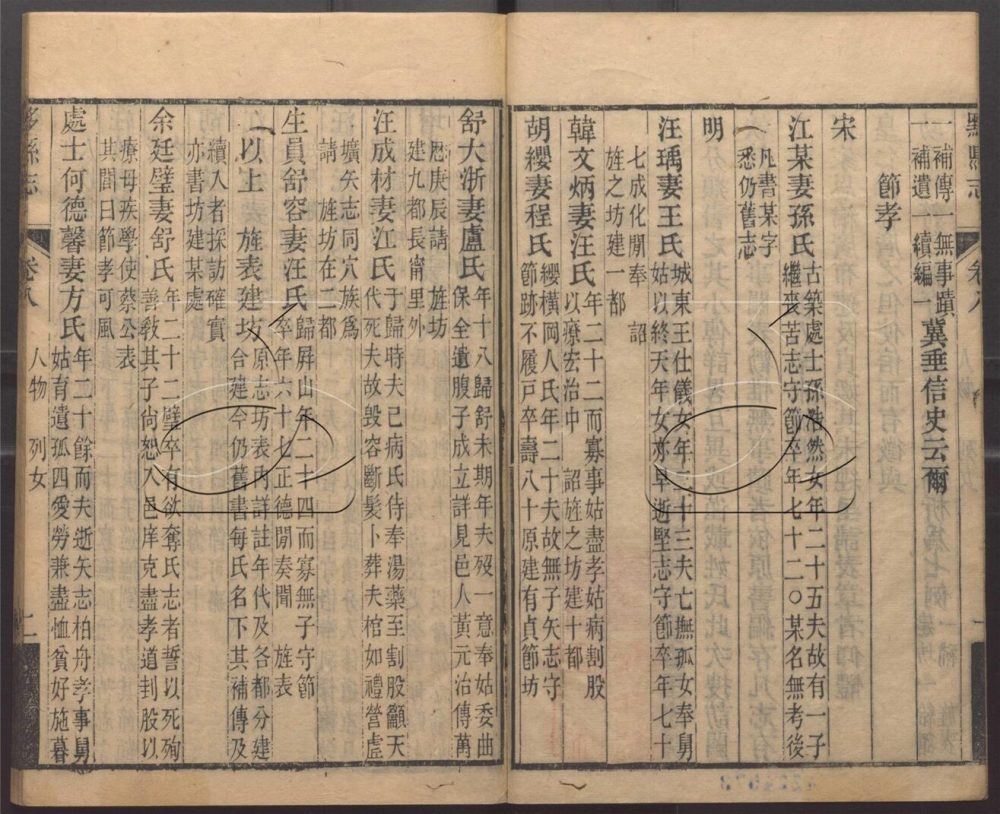 黟縣志
卷八
一補傳一無事蹟
一補遺一續編一冀垂信史云爾
節孝
宋
江某妻孫氏古築處士孫浩然女年二十五夫故有一子
繼喪苦志守節卒年七十二○某名無考後
凡書某字
悉仍舊志
明
汪瑀妻王氏城東王仕儀女年二十三夫亡撫孤女奉舅
姑以終天年女亦早逝堅志守節卒年七十
七成化間奉 詔
旌之坊建一都
韓文炳妻汪氏年二十二而寡事姑盡孝姑病割股
以療宏治中 詔旌之坊建十都
胡纓妻程氏纓橫岡人氏年二十夫故無子矢志守
節跡不履戶卒壽八十原建有貞節坊
舒大浙妻盧氏年十八歸舒未期年夫歿一意奉姑委曲
保全遺腹子成立詳見邑人黃元治傳萬
厯庚辰請 旌坊
建九都長甯里外
汪成材妻江氏于歸時夫已病氏侍奉湯藥至割股籲天
代死夫故毀容斷髮卜葬夫棺如禮營虛
壙矢志同穴族為
請 旌坊在二都
生員舒容妻汪氏歸屏山年二十四而寡無子守節
卒年六十七正德間奏聞 旌表
以上 旌表建坊原志坊表內詳註年代及各都分建
合建今仍舊書每氏名下其補傳及
續入者採訪確實
亦書坊建某處
余廷璧妻舒氏年二十二璧卒有欲奪氏志者誓以死殉
善敎其子尚恕入邑庠克盡孝道刲股以
療母疾學使蔡公表
其閭曰節孝可風
處士何德馨妻方氏年二十餘而夫逝矢志柏舟孝事舅
姑育遺孤四愛勞兼盡恤貧好施暮
黟縣志
卷八
人物 列女
二